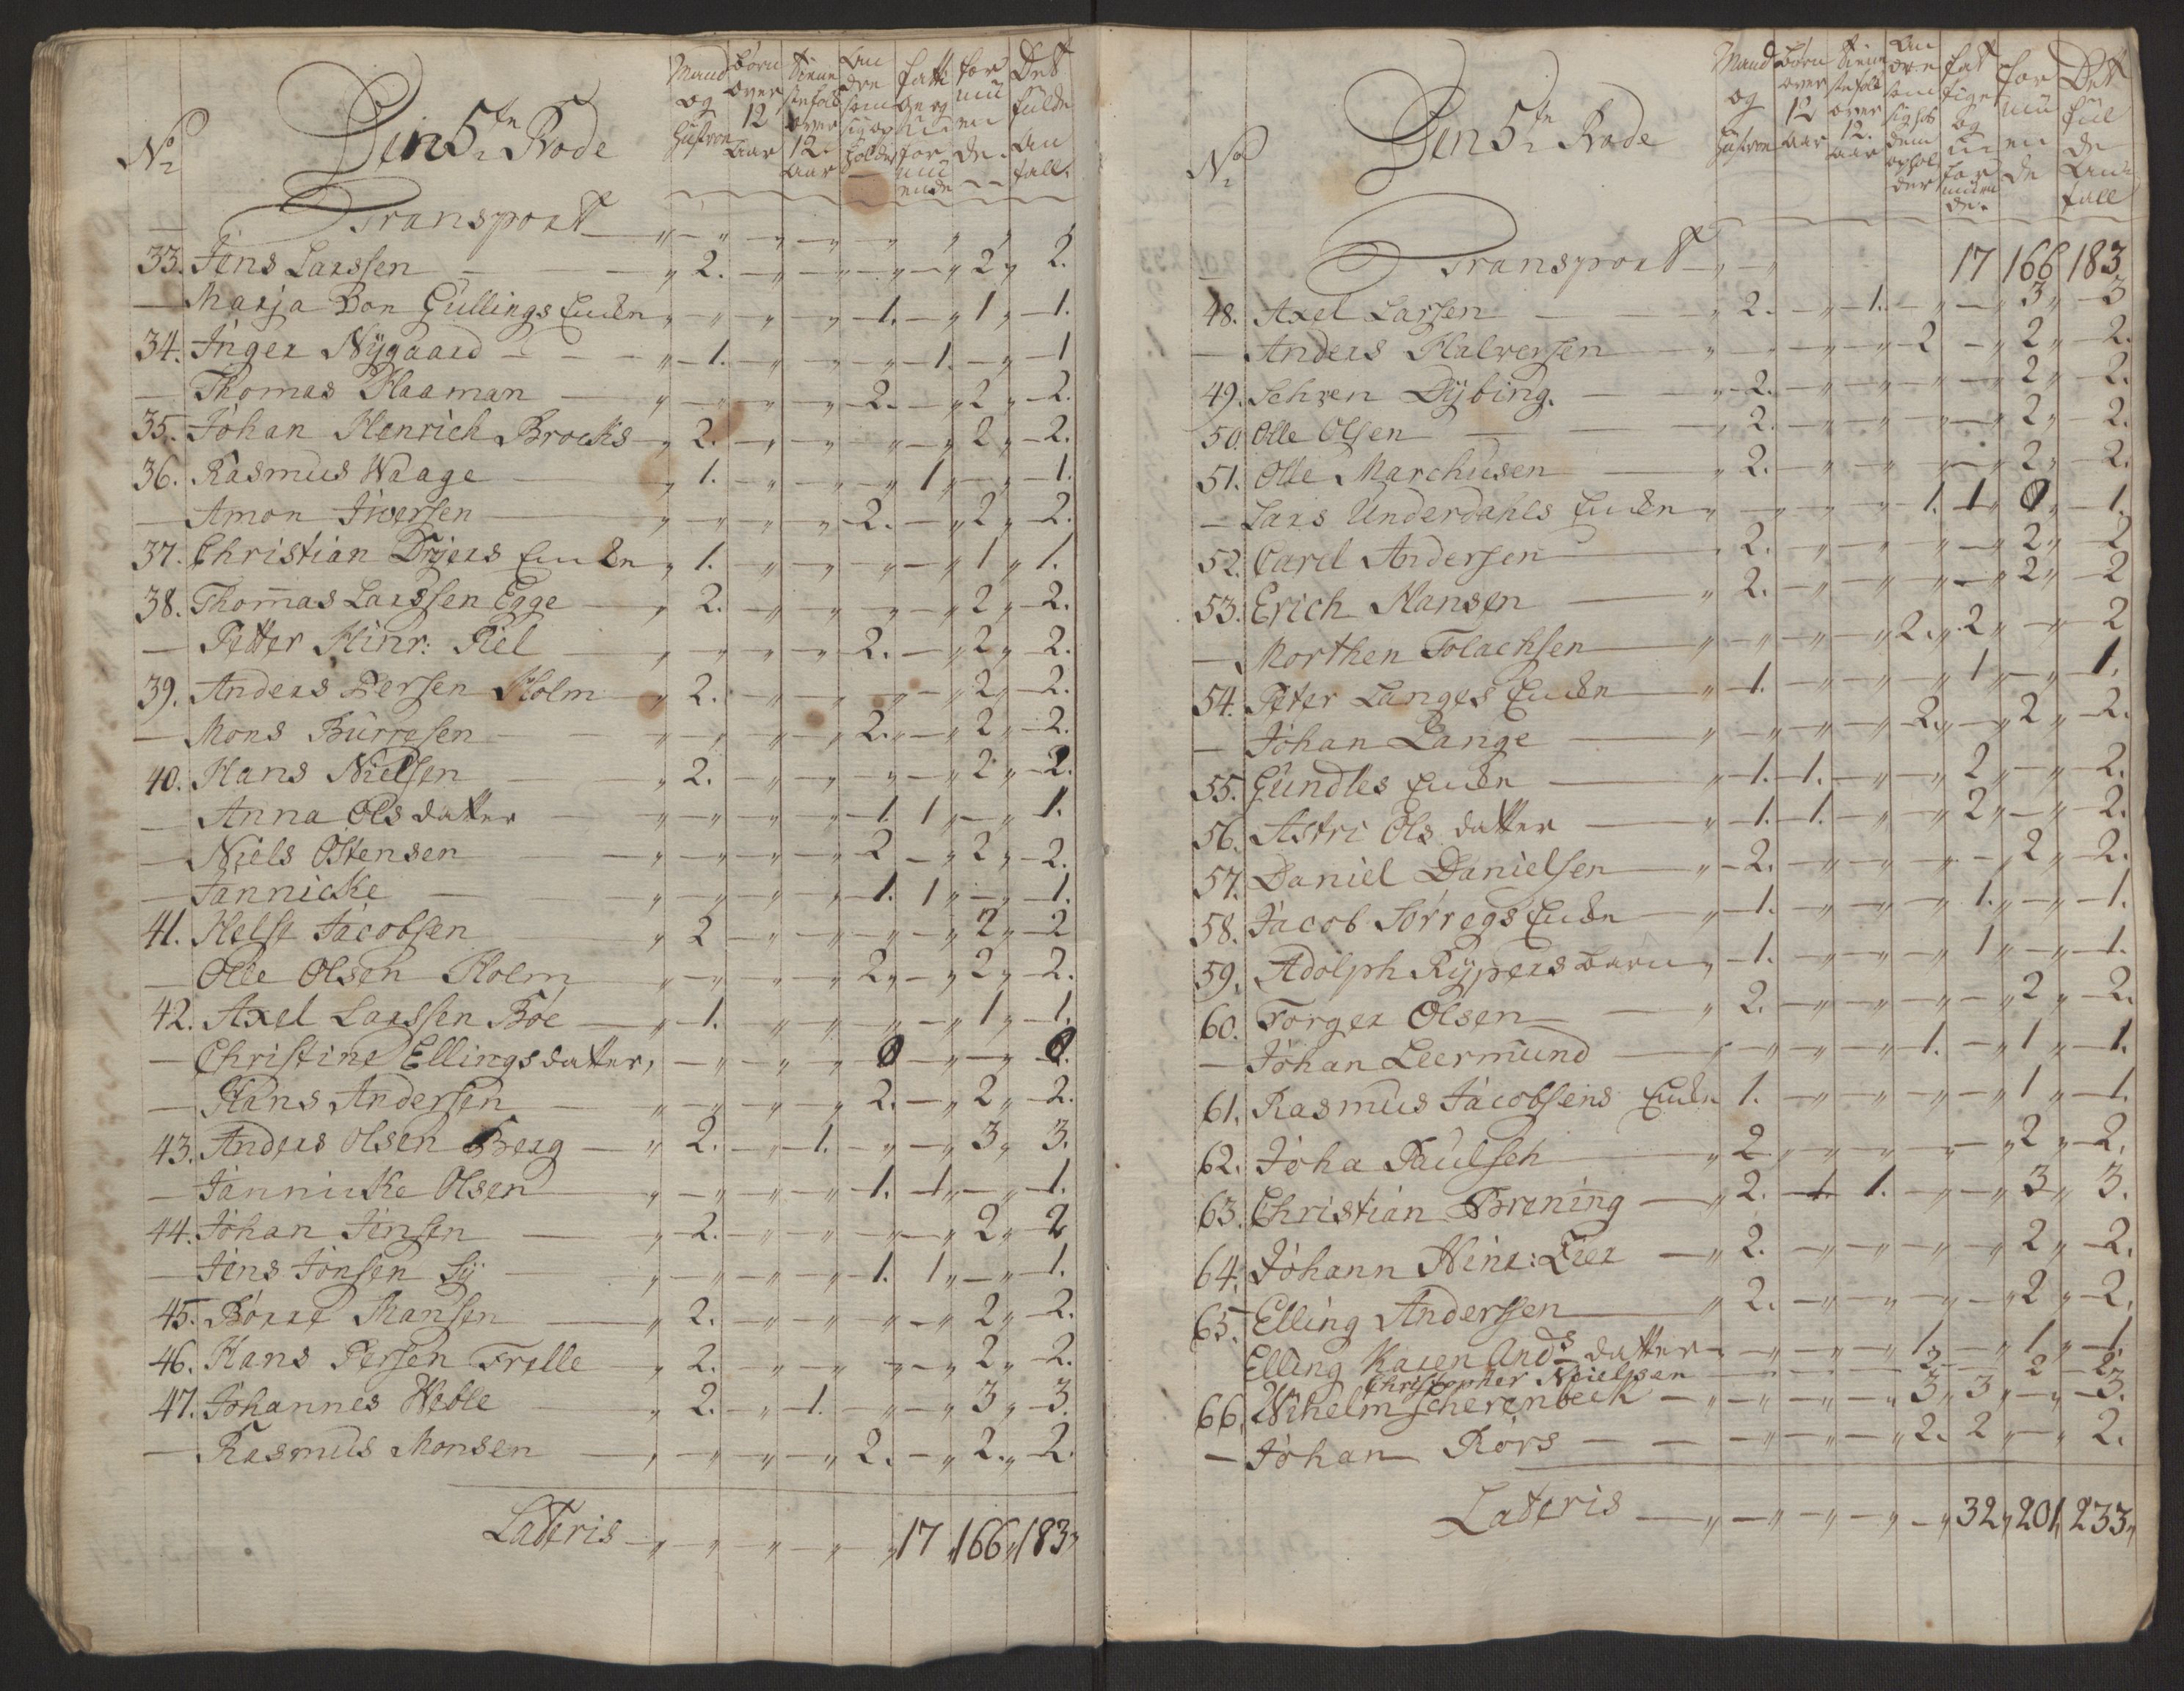 No
Den 5te Rode
Mand og Hustroe
Børn over 12 Aar
Tienestefolk over 12 Aar
Andre som sig opholder
Fattige og uformuende
Formuende
Det fulde Antall
Transport
33. Jens Larssen 2. 2 2.
Marja Von Gullings Enken 1. 1 1.
34. Inger Nÿgaard 1. 1. 1
Thomas Haaman 2. 2 2.
35. Johan Henrich Brocks 2. 2 2.
36. Rasmus Waage 1. 1 1.
Amon Iwersen 2. 2 2.
37. Christian Drÿers Enken 1. 1 1.
38. Thomas Larssen Egge 2. 2 2.
Petter Hinr: Piel 2. 2 2.
39. Anders Persen Holm 2. 2 2.
Mons Burresen 2. 2 2.
40. Hans Nielsen 2. 2 2.
Anna Ols datter 1. 1 1.
Niels Ostensen 2 2 2.
Jannicke 1. 1 1.
41. Helse Jacobsen 2 2 2
Olle Olsen Holm 2 2 2.
42. Axel Larssen Böe 1. 1 1.
Christine Ellings datter 0 0.
Hans Andersen 2. 2 2.
43. Anders Olsen Berg 2. 1. 3 3.
Jannicke Olsen 1. 1 1.
44. Johan Jensen 2. 2 2
Jens Jonsen Sÿ 1. 1 1.
45. Börre Hansen 2. 2 2.
46. Hans Persen Frille 2. 2 2.
47. Johannes Weble 2. 1. 3 3.
Rasmus Monsen 2. 2 2.
Lateris 17 166 183
No
Den 5te Rode
Mand og Hustroe
Børn over 12 Aar
Tienestefolk over 12. Aar
Andre som sig hos dem opholder
Fattige og uformuende
Formuende
Det fulde Antall
Transport 17 166 183
48. Axel Larsen 2. 1. 3 3
Anders Halversen 2 2 2.
49. Schven Dÿbing. 2. 2 2.
50. Olle Olsen 2. 2 2.
51. Olle Marchusen 2. 2 2.
Lars Underdahls Enken 1. 1 0 1.
52. Carel Andersen 2. 2 2
53. Erich Hansen 2. 2 2
Morthen Folachsen 2. 2 2
54. Peter Langes Enken 1. 1 1.
Johan Lange 2. 2 2.
55. Gundles Enken 1. 1. 2 2.
56. Astri Ols datter 1. 1. 2 2.
57. Daniel Danielsen 2. 2 2.
58. Jacob Sörregs Enken 1. 1. 1.
59. Adolph Rÿpers Barn 1. 1 1.
60. Torger Olsen 2. 2 2.
Johan Leermund 1. 1 1.
61. Rasmus Jacobsens Enken 1. 1 1.
62. Joha Paulsen 2 2 2.
63. Christian Brening 2. 1 1. 3 3.
64. Johann Hinr: Lier 2. 2 2.
65. Elling Anderssen 2. 2 2.
Elling Karen Ands datter 1 1 1
Christopher Nielsen 2 2 2
66. Wihelm Scherenbeck 3 3 3.
Johan Rörs 2. 2 2.
Lateris 32 201 233